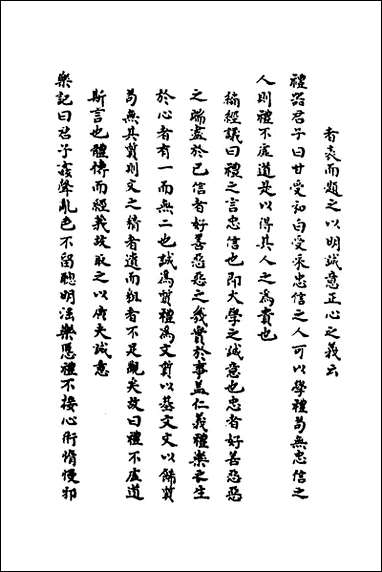 者表而題之以明誠意正心之義云
禮器君子曰甘受和白受采忠信之人可以學禮苟無忠信之
人則禮不虛道是以得其人之為貴也
經議曰禮之言忠信也即大學之誠意也忠者好善惡惡
之端盡於己信者好善惡惡之幾實於事盖仁義禮樂之生
於心者有一而無二也誠為質禮為文質以基文文以飾質
苟無其質則文之精者遺而粗者不足觀矣故曰禮不虛道
斯言也體傳而經義故取之以廣夫誠意
樂記曰君子姦聲亂色不留聰明淫樂慝禮不接心術惰慢邪